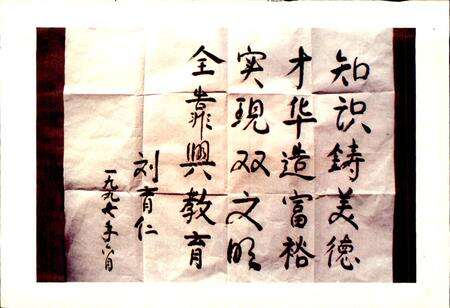 知识鋳美德
才华造富裕
实现双文明
全靠興教育
刘育仁
一九九七年六月